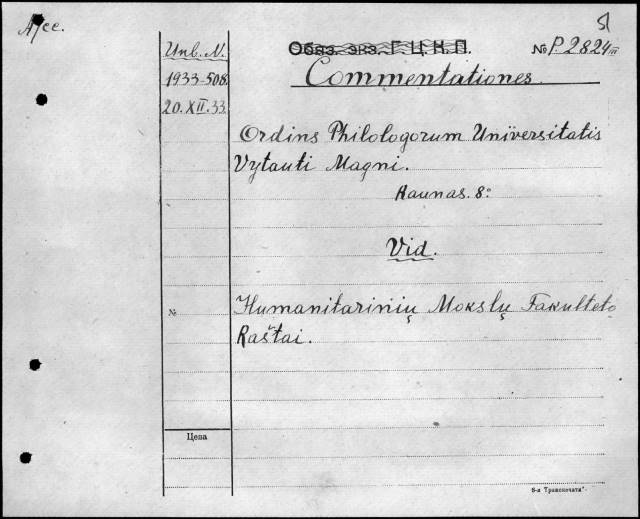 Инв. N.
1933-508.
20.XII.33.
Обяз. экз. Г.Ц.К.П.
№ P.2824 III
Commentationes
Ordins Philologorum Universitatis
Vytauti Magni.
Kaunas. 8°
Vid.
№
Humanitarinių Mokslų Fakulteto
Raštai.
Цена
8-я Транспечати"